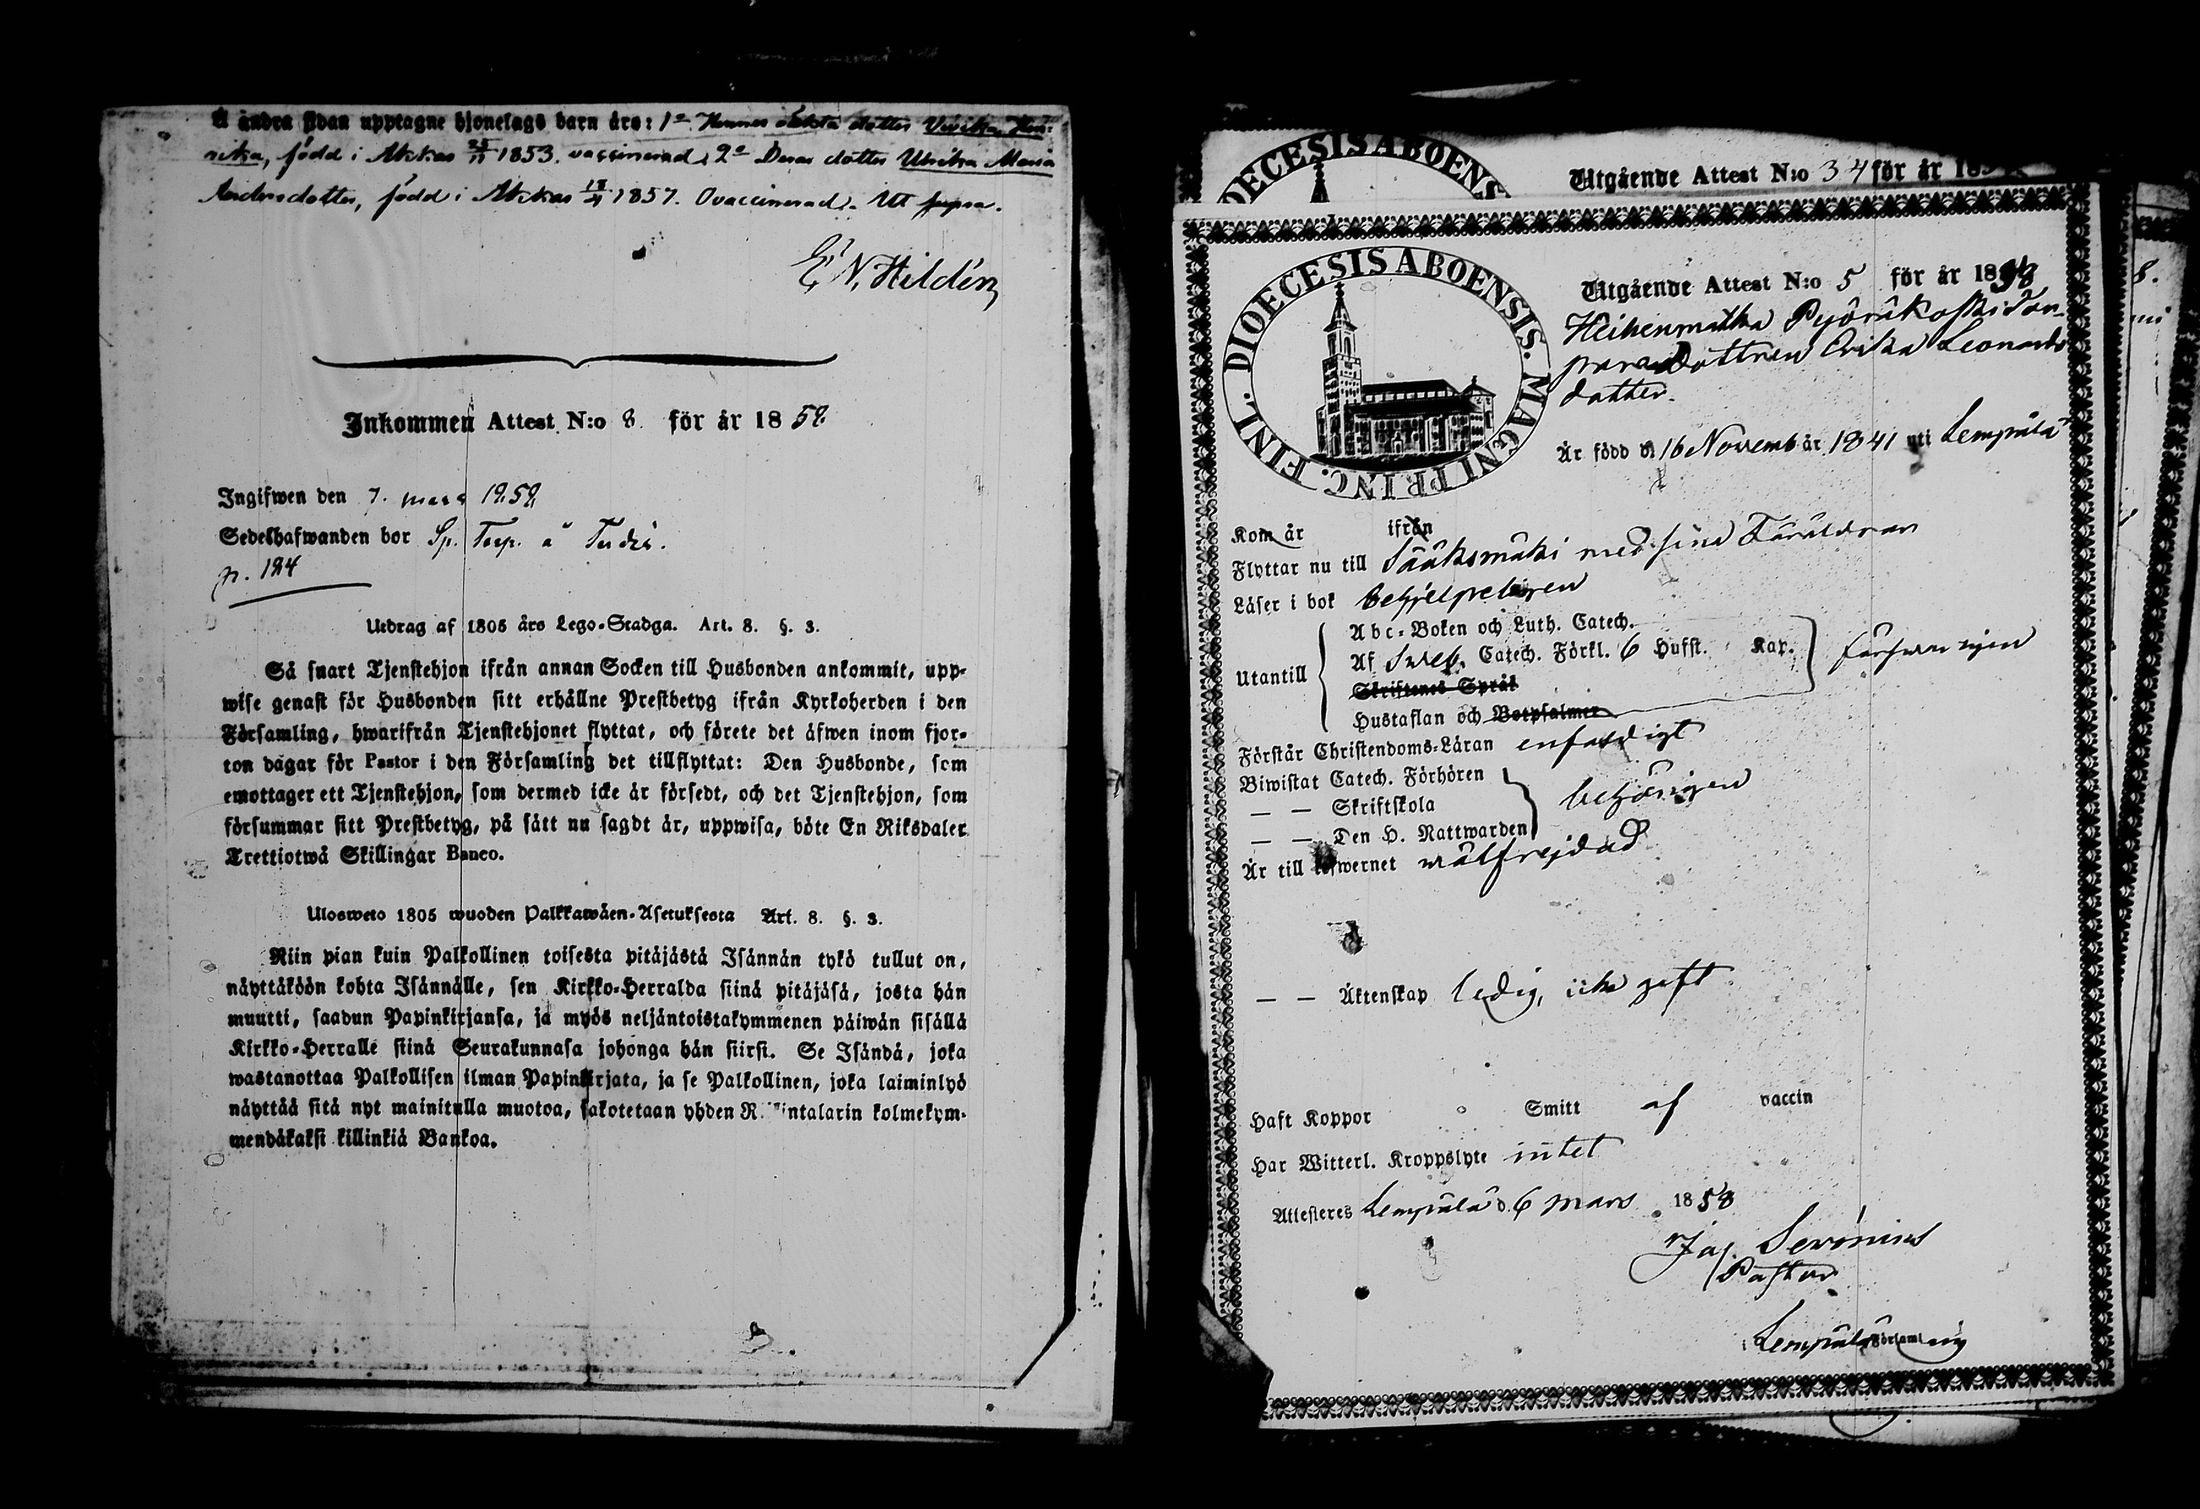 Å andra sidan upptagne hjonelags barn äro: 1o Hennes oäkta dotter Vivika Hen-
rika, född i Akkas 1853. vaccinerad, 2o Deras dotter Ulrika Maria
Andersdotter, född i Akkas 1857. Ovaccinerad. Ut supra.
E. N. Hildén
Inkommen Attest N:o 8 för år 1858.
Ingifwen den 7. mars 1858
Sedelhafwanden bor Sp. Torp. å
p. 124
Utdrag af 1805 års Lego-Stadga. Art. 8. §. 3.
Så snart Tjenstehjon ifrån annan Socken till Husbonden ankommit, upp-
wise genast för Husbonden sitt erhållne Prestbetyg ifrån Kyrkoherden i den
Församling, hwarifrån Tjenstehjonet flyttat, och förete det äfwen inom fjor-
ton dagar för Pastor i den Församling det tillflyttat: Den Husbonde, som
emottager ett Tjenstehjon, som dermed icke är försedt, och det Tjenstehjon, som
försummar sitt Prestbetyg, på sätt nu sagdt är, uppwisa, böte En Riksdaler
Trettiotwå Skillingar Banco.
Ulosweto 1805 wuoden Palkkawäen-Asetuksesta Art. 8. §. 3.
Niin pian kuin Palkollinen toisesta pitäjästä Isännän tykö tullut on,
näyttäköön kohta Isännälle, sen Kirkko-Herralda siinä pitäjäsä, josta hän
muutti, saadun Papinkirjansa, ja myös neljäntoistakymmenen päiwän sisällä
Kirkko-Herralle siinä Seurakunnasa johonga hän siirsi. Se Isändä, joka
wastanottaa Palkollisen ilman Papinkirjata, ja se Palkollinen, joka laiminlyö
näyttää sitä nyt mainitulla muotoa, sakotetaan yhden Riikintalarin kolmekym-
mendäkaksi killinkiä Bankoa.
DIOECESIS ABOENS
Utgående Attest N:o 34 för år 185
DIOECESIS ABOENSIS. MAGNI PRINC. FINL.
Utgående Attest N:o 5 för år 1858
Heikenmatka Pyöräkoski Tor-
pare Dottren Erika Leonards
dotter.
Är född d 16 Novemb år 1841 uti Lempälä
Kom år ifrån
Flyttar nu till Sääksmäki med sina Föräldrar
Läser i bok behjelpeligen
Utantill
Abc-Boken och Luth. Catech.
Af Sveb. Catech. Förkl. 6 Hufst. Kap.
försvarligen
Skriftenes Språk
Hustaflan och Botpsalmer
Förstår Christendoms-Läran enfaldigt
Biwistat Catech. Förhören
— — Skriftskola
behörigen
— — Den H. Nattwarden
Är till lefwernet wälfrejdad
— — Äktenskap ledig, icke gift
Haft Koppor Smitt af vaccin
Har Witterl. Kroppslyte intet
Attesteres Lempälä d. 6 mars 1858
Jac. Seronius
Pastor
Lempälä Församling